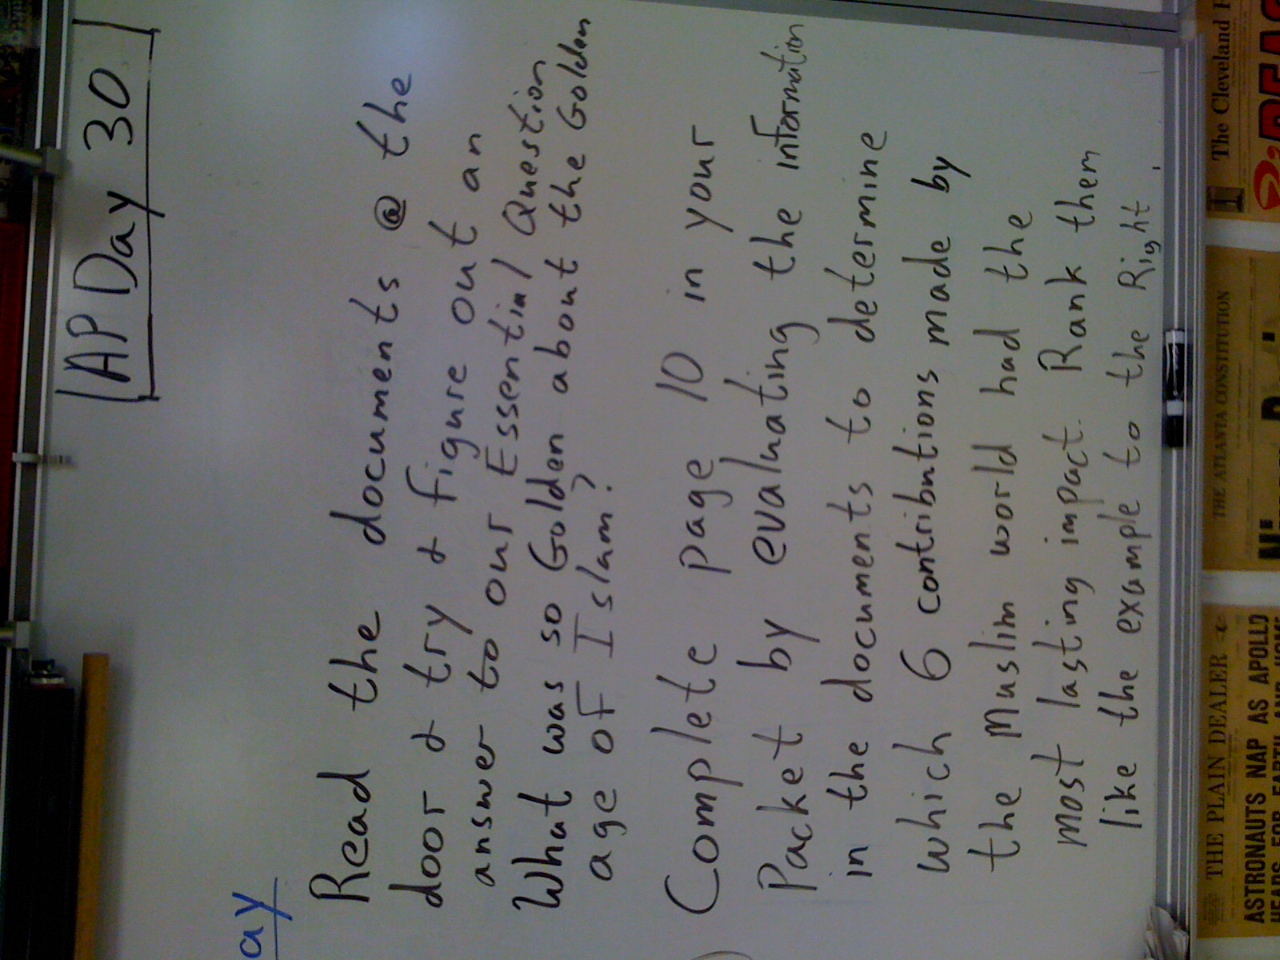 AP Day 30
ay
Read the documents @ the
door & try & figure out an
answer to our Essential Question
What was so Golden about the Golden
age of Islam?
) Complete page 10 in your
Packet by evaluating the information
in the documents to determine
which 6 contributions made by
the Muslim world had the
most lasting impact. Rank them
like the example to the Right.
THE PLAIN DEALER
ASTRONAUTS NAP AS APOLLO
THE ATLANTA CONSTITUTION
The Cleveland